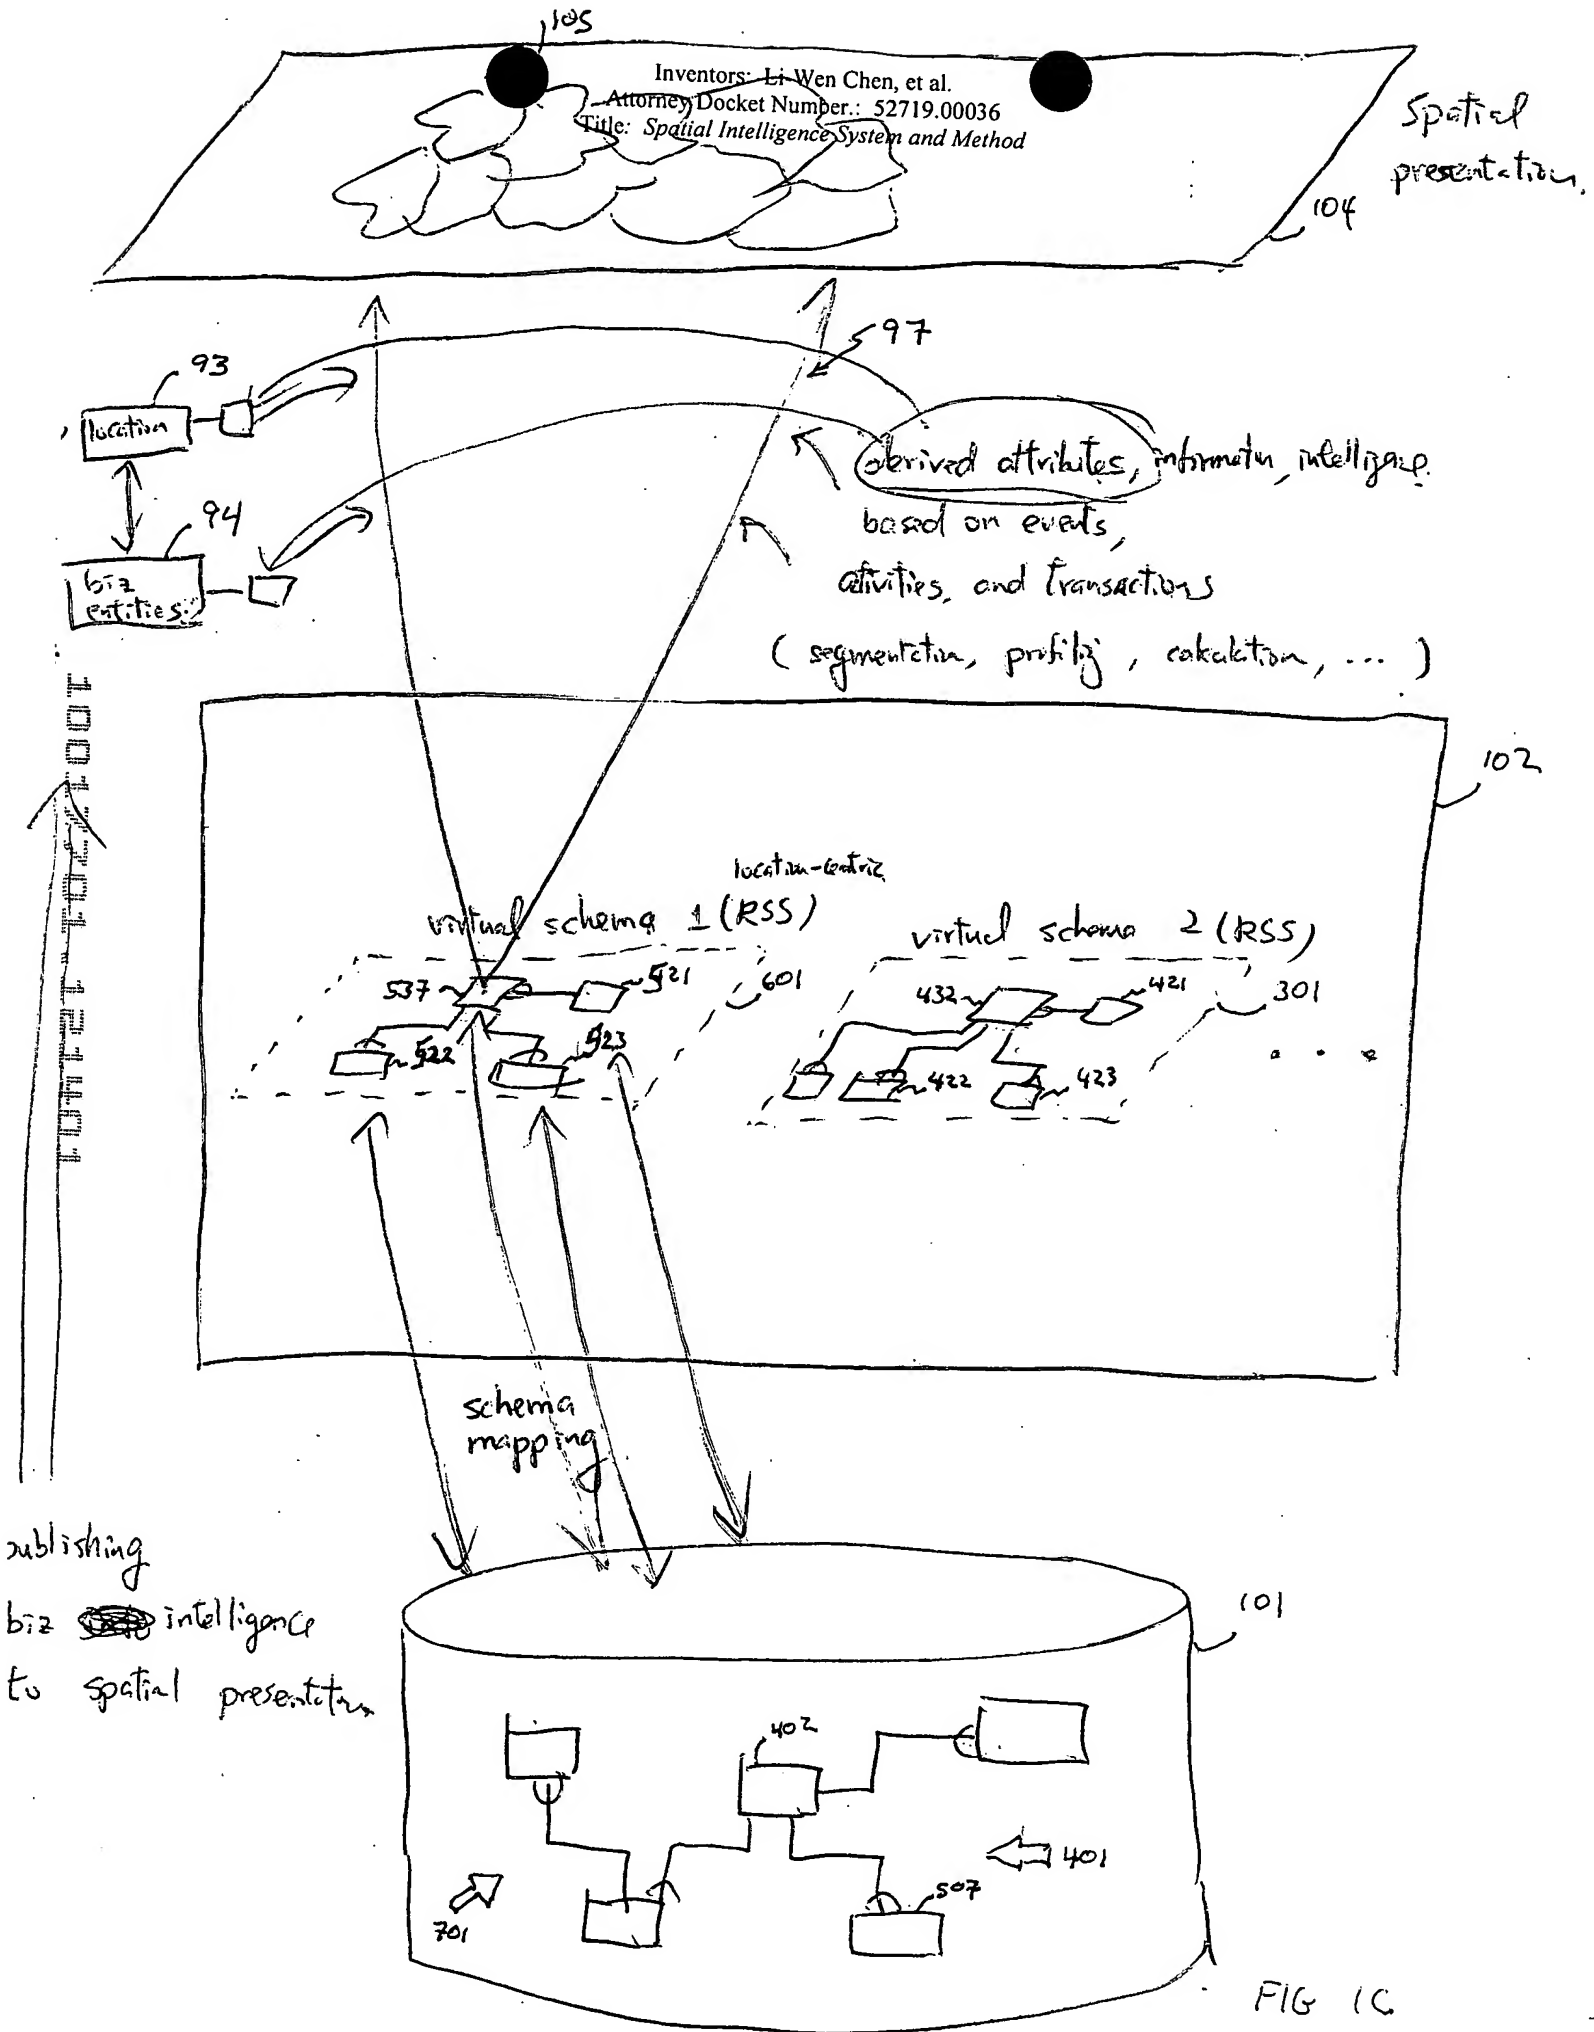 105
Inventors: Li-Wen Chen, et al.
Attorney Docket Number.: 52719.00036
Title: Spatial Intelligence System and Method
Spatial
presentation.
104
97
93
location
derived attributes, informatn, intelligence.
94
based on events,
biz
entities
ativities, and transactions
(segmentation, profilig, calculation, ...)
10017201.121401
102
location-centric
virtual schema 1 (RSS)
virtual schema 2 (RSS)
537
521
601
432
421
301
522
523
422
423
schema
mapping
publishing
biz intelligence
to spatial presentation
101
402
401
507
701
FIG 1C